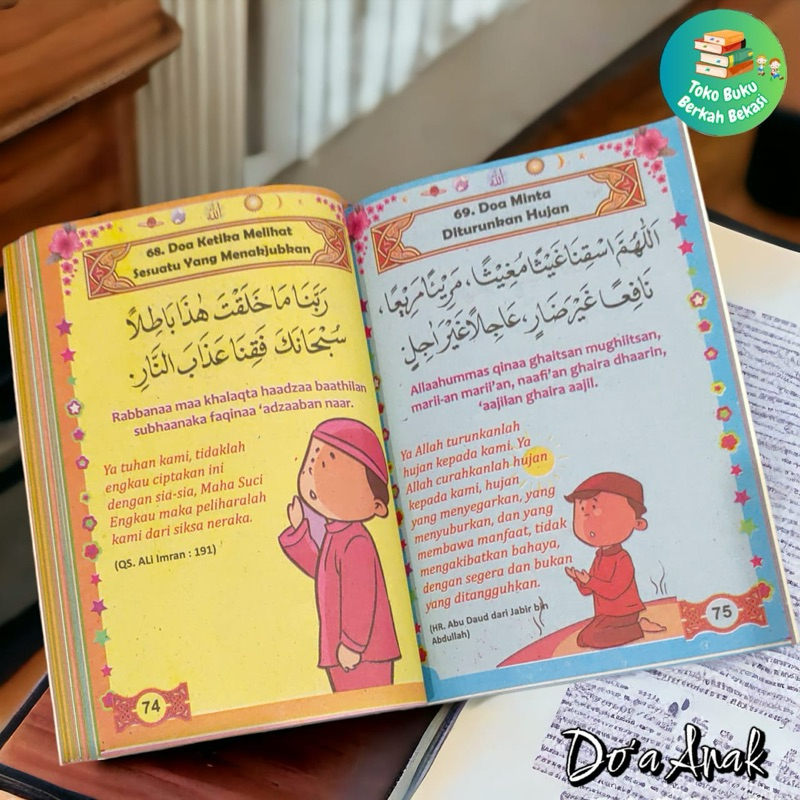 Toko Buku
Berkah Bekasi
68. Doa Ketika Melihat
Sesuatu Yang Menakjubkan
رَبَّنَا مَا خَلَقْتَ هٰذَا بَاطِلًا
سُبْحَانَكَ فَقِنَا عَذَابَ النَّارِ.
Rabbanaa maa khalaqta haadzaa baathilan
subhaanaka faqinaa 'adzaaban naar.
Ya tuhan kami, tidaklah
engkau ciptakan ini
dengan sia-sia, Maha Suci
Engkau maka peliharalah
kami dari siksa neraka.
(QS. ALi Imran : 191)
74
69. Doa Minta
Diturunkan Hujan
اَللّٰهُمَّ اسْقِنَا غَيْثًا مُغِيْثًا، مَرِيْئًا مَرِيْعًا،
نَافِعًا غَيْرَ ضَارٍ، عَاجِلًا غَيْرَ اٰجِلٍ.
Allaahummas qinaa ghaitsan mughiitsan,
marii-an marii'an, naafi'an ghaira dhaarin,
'aajilan ghaira aajil.
Ya Allah turunkanlah
hujan kepada kami. Ya
Allah curahkanlah hujan
kepada kami, hujan
yang menyegarkan, yang
menyuburkan, dan yang
membawa manfaat, tidak
mengakibatkan bahaya,
dengan segera dan bukan
yang ditangguhkan.
(HR. Abu Daud dari Jabir bin
Abdullah)
75
Do'a Anak